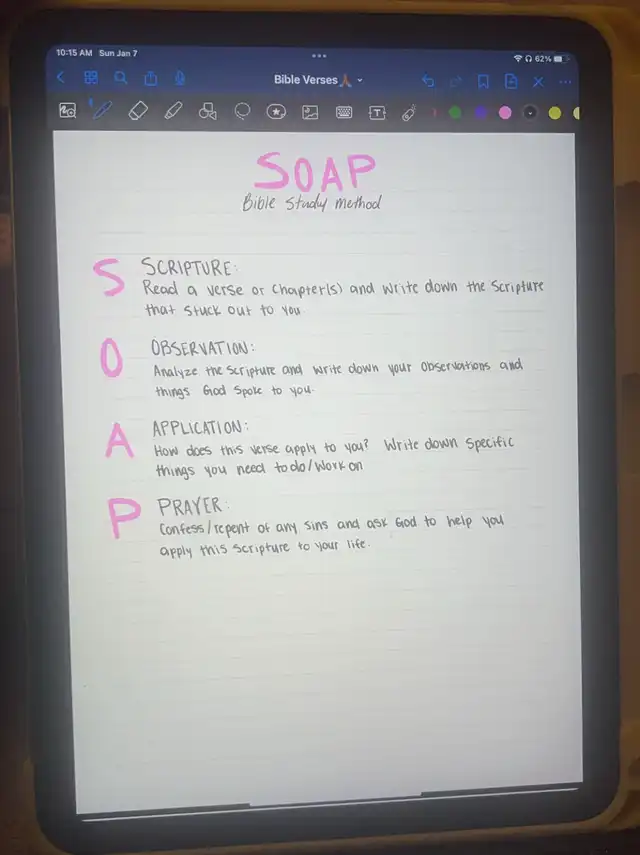 10:15 AM Sun Jan 7
62%
Bible Verses
SOAP
Bible Study method
S SCRIPTURE:
Read a verse or Chapter(s) and write down the Scripture
that stuck out to you.
O OBSERVATION:
Analyze the Scripture and write down your observations and
things God spoke to you.
A APPLICATION:
How does this verse apply to you? Write down specific
things you need to do/work on
P PRAYER:
Confess/repent of any sins and ask God to help you
apply this scripture to your life.